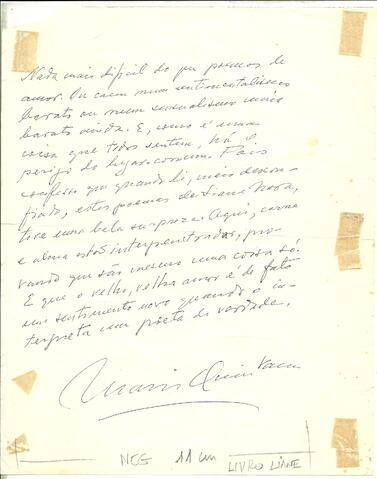 Nada mais difícil do que poemas de
amor. Ou caem num sentimentalismo
barato ou num sensualismo mais
barato ainda. E, como é uma
coisa que todos sentem, há o
perigo do lugar-comum. Pois
confesso que quando li, mais descon-
fiado, estes poemas de Liane Nora,
tive uma bela surpresa: Aqui, carne
e alma estão interpenetradas, pro-
vando que são mesmo uma coisa só.
E que o velho, velho amor é de fato
um sentimento novo quando o in-
terpreta um poeta de verdade.
Mario Quintana
NCG 11 cm LIVRO LIANE